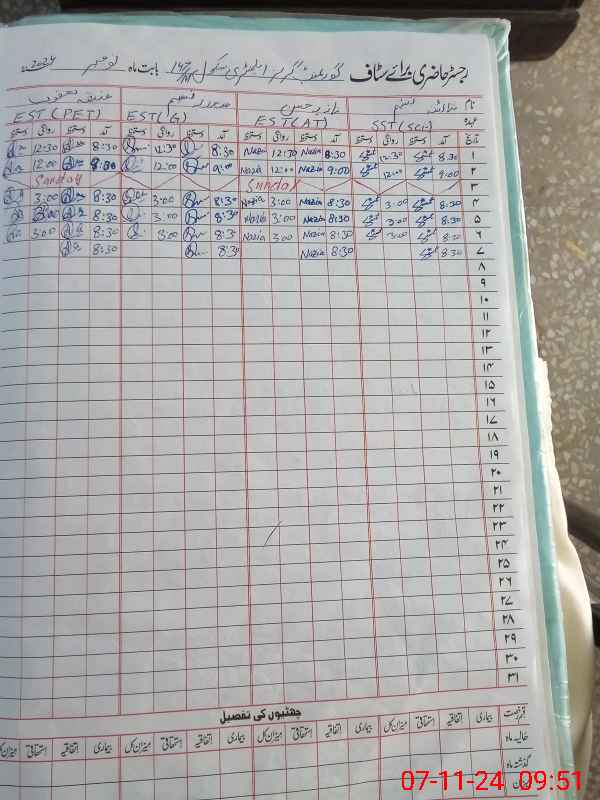 رجسٹر حاضری برائے سٹاف گورنمنٹ گرلز ایلیمنٹری سکول بابت ماہ نومبر 2024
نام
عہدہ SST (Sci) EST (AT) EST (G) EST (PET)
تاریخ آمد دستخط روانگی دستخط آمد دستخط روانگی دستخط آمد دستخط روانگی دستخط آمد دستخط روانگی دستخط
۱ 8:30 12:30 8:30 Nazia 12:30 Nazia 8:30 12:30 8:30 12:30
۲ 9:00 12:00 9:00 Nazia 12:00 Nazia 9:00 12:00 8:30 12:00
۳ Sunday Sunday
۴ 8:30 3:00 8:30 Nazia 3:00 Nazia 8:30 3:00 8:30 3:00
۵ 8:30 3:00 8:30 Nazia 3:00 Nazia 8:30 3:00 8:30 3:00
۶ 8:30 3:00 8:30 Nazia 3:00 Nazia 8:30 3:00 8:30 3:00
۷ 8:30 8:30 Nazia 8:30 8:30
۸
۹
۱۰
۱۱
۱۲
۱۳
۱۴
۱۵
۱۶
۱۷
۱۸
۱۹
۲۰
۲۱
۲۲
۲۳
۲۴
۲۵
۲۶
۲۷
۲۸
۲۹
۳۰
۳۱
چھٹیوں کی تفصیل
قسم رخصت بیماری اتفاقیہ استحقاقی میزان کل بیماری اتفاقیہ استحقاقی میزان کل بیماری اتفاقیہ استحقاقی میزان کل بیماری اتفاقیہ استحقاقی میزان کل
حالیہ ماہ
گذشتہ ماہ
میزان
07-11-24 09:51